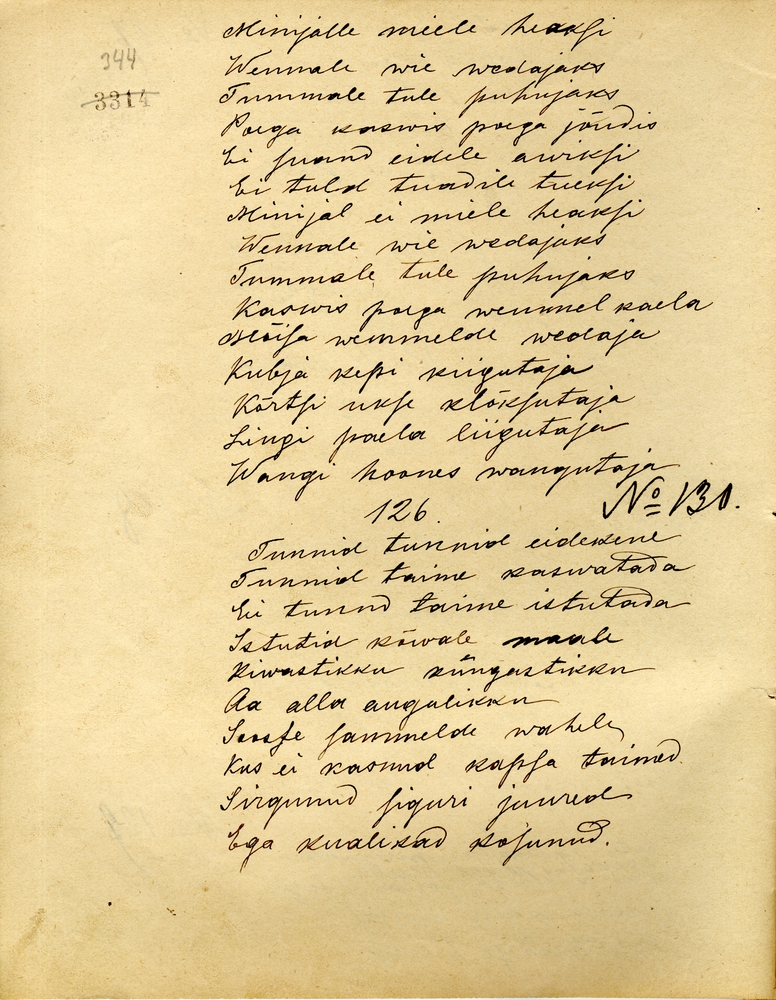 344
3314
Minijalle miele heaksi
Wennale wie wedajaks
Tummale tule puhujaks
Poega kaswis poega jõudis
Ei saand eidele awiksi
Ei tuld tuadile tueksi
Minijal ei miele heaksi
Wennale wie wedajaks
Tummale tule puhujaks
Kaswis poega wemmel kaela
Mõisa wemmelde wedaja
Kubja kepi kiigutaja
Kõrtsi ukse klõksutaja
Lingi paela liigutaja
Wangi hoones wangutaja
126. No 130.
Tunnid tunnid eidekene
Tunnid taime kaswatada
Ei tunnd taime istutada
Istutid kõwale maale
Kiwastikku küngastikku
Aa alla augulikku
Soosse sammelde wahele
Kus ei kasnud kapsa taimed
Sirgunud siguri juured
Ega kualikad kosunud.